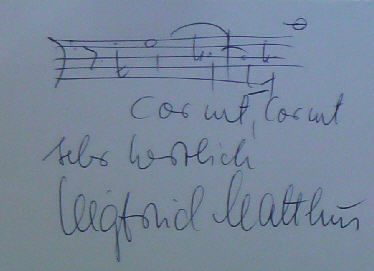 Cornet, Cornet
sehr herzlich
Siegfried Matthus